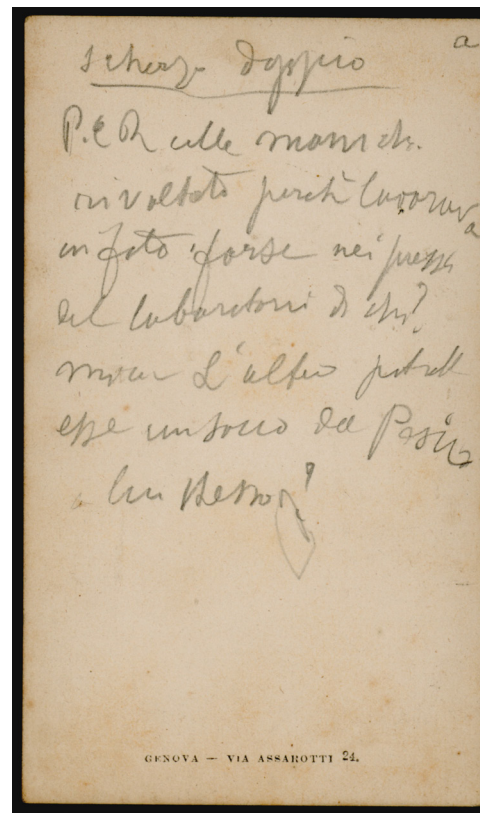 a
scherzo doppio
P. e R colle maniche
rivoltate perché lavorava
in foto forse nei pressi
del laboratorio di chi?
mica L'altro potrebb
esse un socio del
lui stesso?
GENOVA — VIA ASSAROTTI 24.